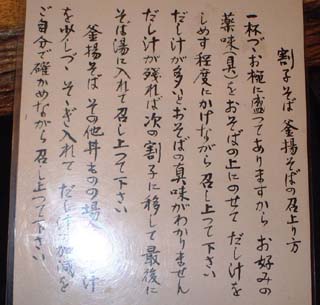 割子そば 釜揚そばの召上り方
一杯づつお椀に盛つてありますから お好みの
薬味(具)をおそばの上にのせて だし汁を
しめす程度にかけながら召し上つて下さい
だし汁が多いとおそばの真味がわかりません
だし汁が残れば次の割子に移して最後に
そば湯に入れて召し上つて下さい
釜揚そば その他丼ものの場合 汁
を少しづゝそゝぎ入れて だし汁の加減を
ご自分で確かめながら召し上つて下さい